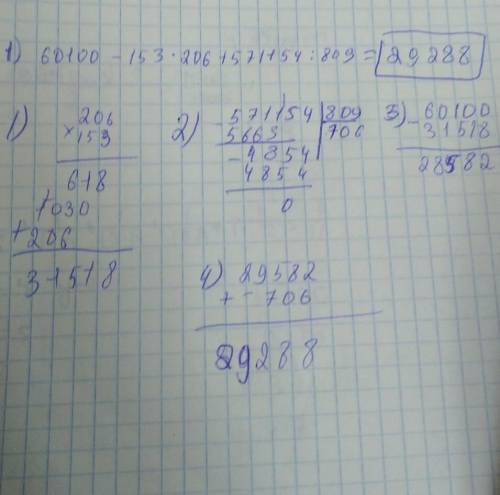 1) 60100 - 153 · 206 + 571154 : 809 = 29288
1) 206
× 153
618
1030
+ 206
31518
2) - 571154 | 809
5663 | 706
- 4854
4854
0
3) - 60100
31518
28582
4) 29582
+ - 706
29288